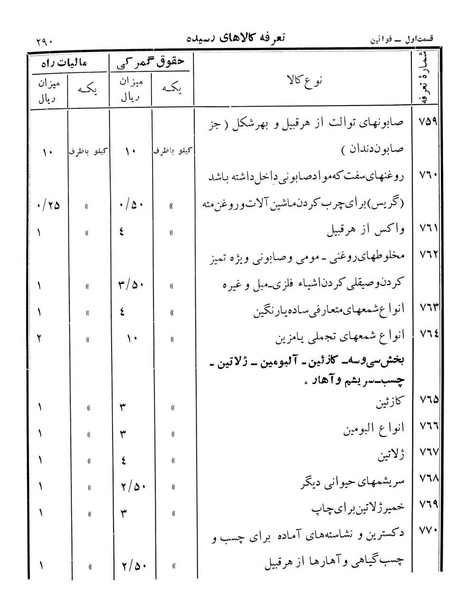 قسمت اول ـ قوانین تعرفه کالاهای رسیده ۲۹۰
شمارهٔ تعرفه نوع کالا حقوق گمرکی مالیات راه
یکه میزان ریال یکه میزان ریال
۷۵۹ صابونهای توالت از هرقبیل و بهرشکل ( جز
صابون دندان ) کیلو باظرف ۱۰ کیلو باظرف ۱۰
۷۶۰ روغنهای سفت که مواد صابونی داخل داشته باشد
(گریس) برای چرب کردن ماشین آلات و روغن مته » ۰/۵۰ » ۰/۲۵
۷۶۱ واکس از هرقبیل » ٤ » ۱
۷۶۲ مخلوطهای روغنی ـ مومی و صابونی ویژه تمیز
کردن وصیقلی کردن اشیاء فلزی ـ مبل و غیره » ۳/۵۰ » ۱
۷۶۳ انواع شمعهای متعارفی ساده یا رنگین » ٤ » ۱
۷۶٤ انواع شمعهای تجملی یا مزین » ۱۰ » ۲
بخش سی و سه ـ کازئین ـ آلبومین ـ ژلاتین ـ
چسب ـ سریشم و آهار .
۷۶۵ کازئین » ۳ » ۱
۷۶۶ انواع البومین » ۳ » ۱
۷۶۷ ژلاتین » ٤ » ۱
۷۶۸ سریشمهای حیوانی دیگر » ۲/۵۰ » ۱
۷۶۹ خمیر ژلاتین برای چاپ » ۳ » ۱
۷۷۰ دکسترین و نشاسته‌های آماده برای چسب و
چسب گیاهی و آهارها از هرقبیل » ۲/۵۰ » ۱